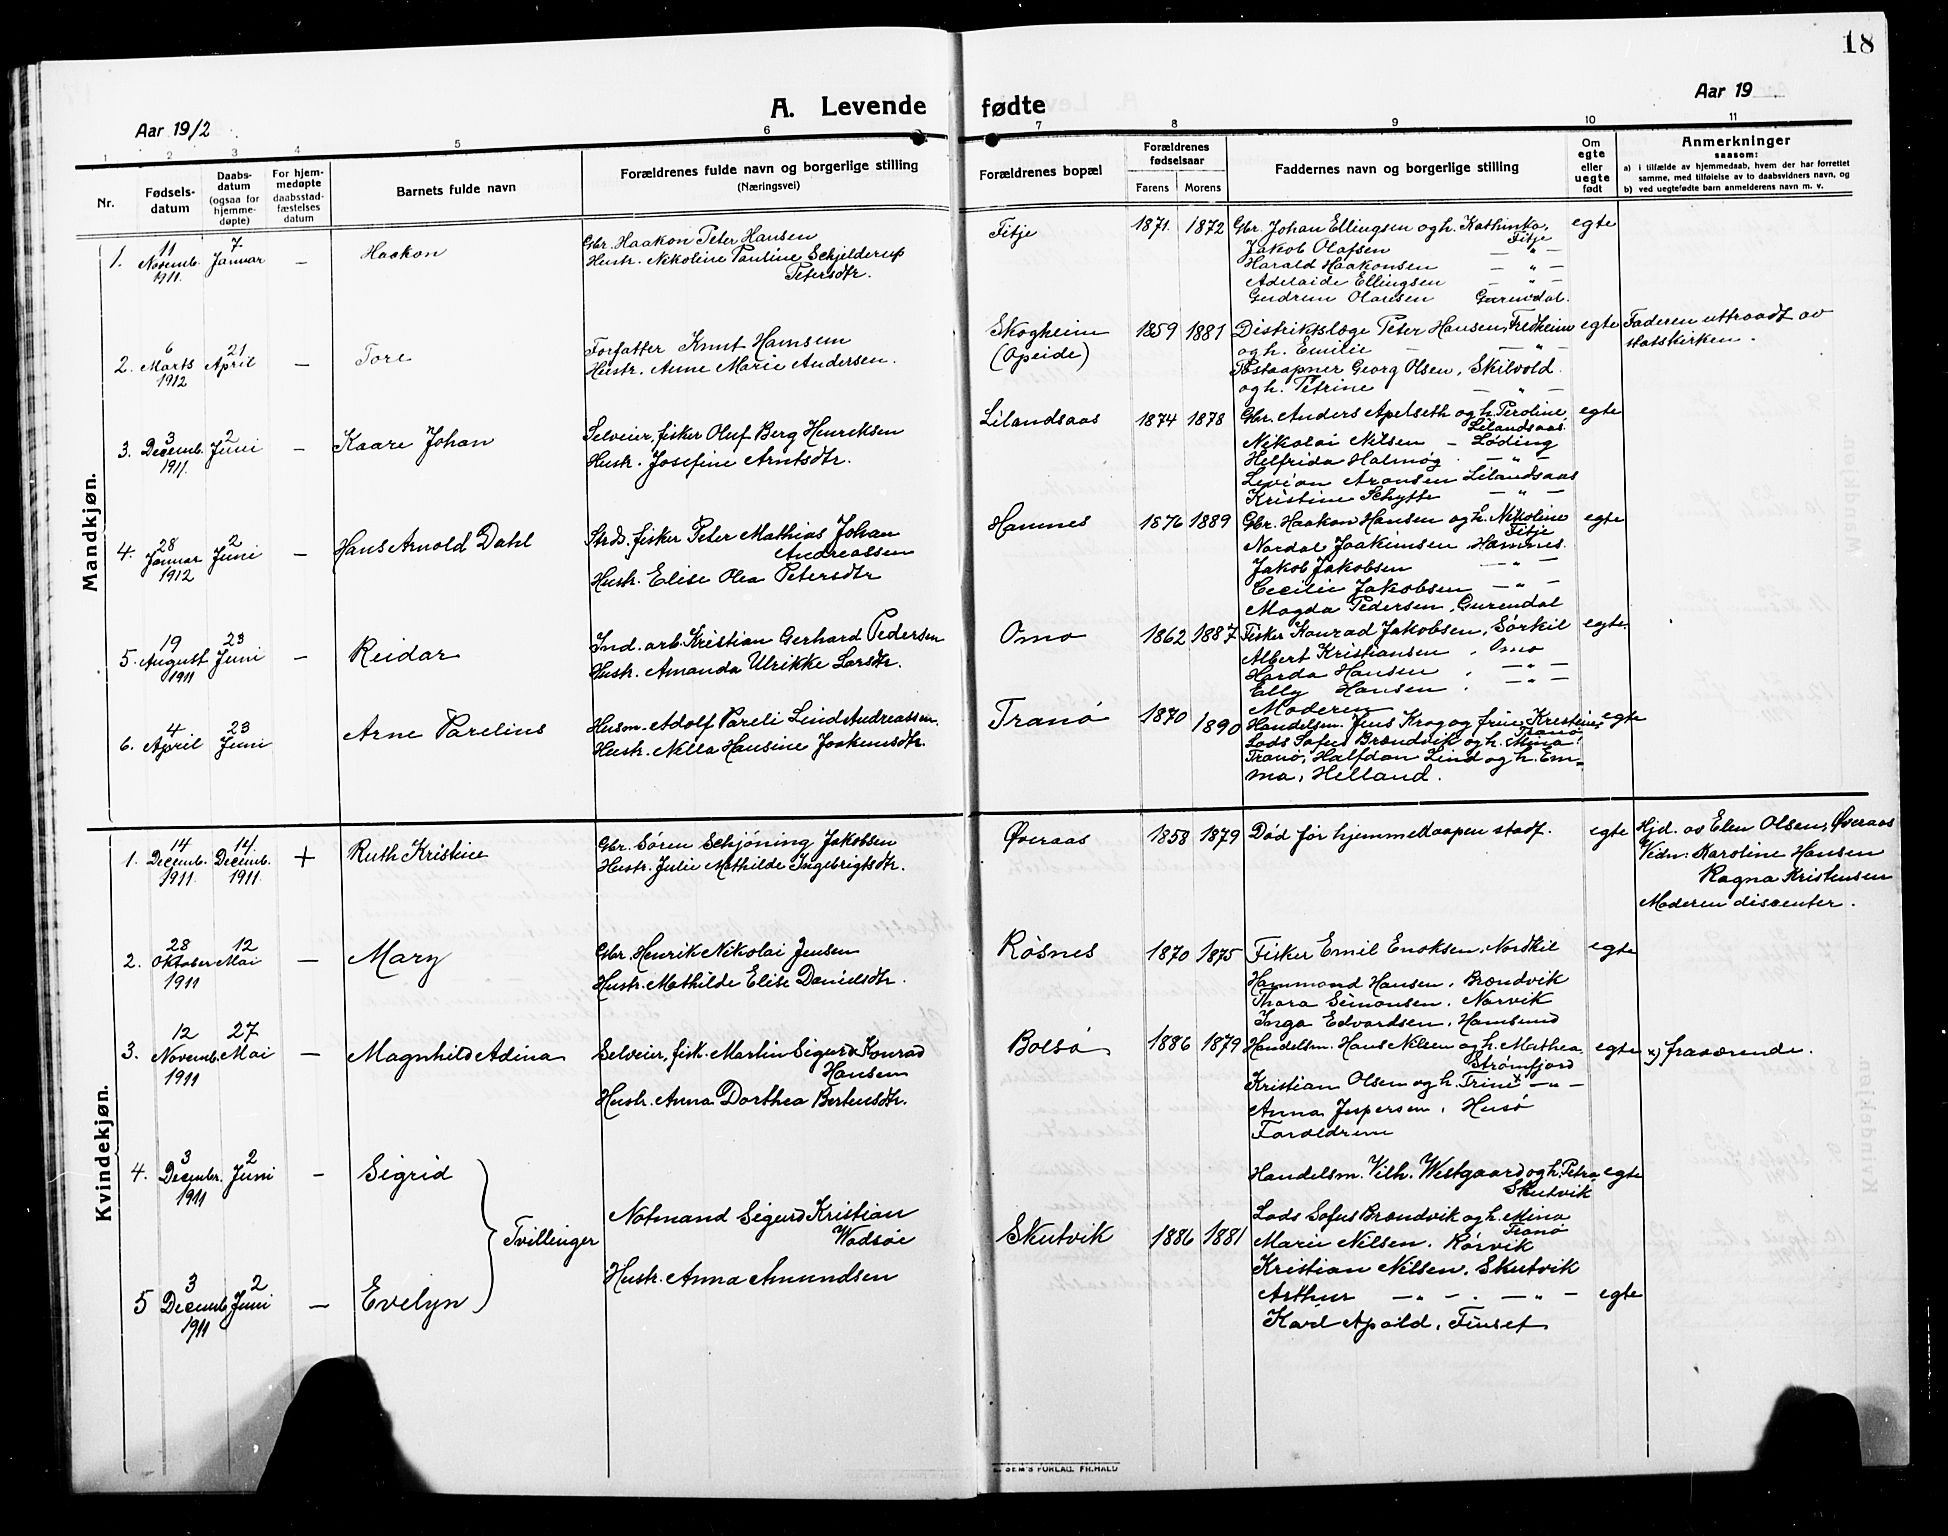 18
A. Levende fødte
Aar 1912
Aar 19
1 2 3 4 5 6 7 8 9 10 11
Nr.
Fødsels-
datum
Daabs-
datum
(ogsaa for
hjemme-
døpte)
For hjem-
medøpte
daabsstad-
fæstelses
datum
Barnets fulde navn
Forældrenes fulde navn og borgerlige stilling
(Næringsvei)
Forældrenes bopæl
Forældrenes
fødselsaar
Farens Morens
Faddernes navn og borgerlige stilling
Om
egte
eller
uegte
født
Anmerkninger
saasom:
a) i tilfælde av hjemmedaab, hvem der har forrettet
samme, med tilføielse av to daabsvidners navn, og
b) ved uegtefødte barn anmelderens navn m. v.
Mandkjøn.
1. 11 Novemb. 1911. 7 Januar – Haakon
Gbr. Haakon Peter Hansen
Hustr. Nikoline Pauline Schjelderup
Petersdtr.
Fitje 1871. 1872
Gbr. Johan Ellingsen og h. Kathinka,
Fitje
Jakob Olafsen — " —
Harald Haakonsen — " —
Adelaide Ellingsen — " —
Gudrun Olausen Gurendal.
egte
2. 6 Marts 1912 21 April – Tore
Forfatter Knut Hamsun
Hustr. Anne Marie Andersen.
Skogheim
(Opeide)
1859 1881
Distriktslæge Peter Hansen, Fredheim
og h. Emilie — " —
Postaapner Georg Olsen, Skilvold.
og h. Petrine — " —
egte
Faderen uttraadt av
statskirken.
3. 3 Decemb. 1911. 2 Juni – Kaare Johan
Selveier, fisker Oluf Berg Henriksen
Hustr. Josefine Arntsdtr.
Lilandsaas 1874 1878
Gbr. Anders Apelseth og h. Peroline,
Lilandsaas.
Nikolai Nilsen – Løding
Helfrida Halmøg — " —
Levion Aronsen Lilandsaas
Kristine Schytte — " —
egte
4. 28 Januar 1912 2 Juni – Hans Arnold Dahl
Strds. fisker Peter Mathias Johan
Andreassen
Hustr. Elise Olea Petersdtr
Hamnes 1876 1889
Gbr. Haakon Hansen og h. Nikoline
Fitje
Nordal Joakimsen Hamnes.
Jakob Jakobsen — " —
Cecilie Jakobsen — " —
Magda Pedersen, Gurendal
egte
5. 19 August 1911 23 Juni – Reidar
Ind. arb. Kristian Gerhard Pedersen
Hustr. Amanda Ulrikke Larsdtr.
Omo 1862 1887
Fisker Konrad Jakobsen, Sørkil
Albert Kristiansen, Omo
Harda Hansen, — " —
Elly Hansen, — " —
Moderen
egte.
6. 4 April 23 Juni Arne Parelius
Husm. Adolf Pareli Lind Andreassen.
Hustr. Nilla Hansine Joakimsdtr.
Tranø 1870 1890
Handelsm. Jens Krog og frue Kristine,
Tranø
Lods Sofus Brændvik og h. Mina
Tranø, Halfdan Lind og h. Em-
ma, Helland.
egte
Kvindekjøn.
1. 14 Decemb. 1911. 14. Decemb. 1911. + Ruth Kristine
Gbr. Søren Schjøning Jakobsen
Hustr. Julie Mathilde Ingebrigtsdtr.
Øveraas 1858 1879
Død før hjemmedaapen stadf.
egte
Hjd. av Elen Olsen, Øveraas
Vidn: Karoline Hansen
Ragna Kristensen
Moderen dissenter.
2. 28 Oktober 1911 12 Mai – Mary
Gbr. Henrik Nikolai Jensen
Hustr. Mathilde Elise Danielsdtr.
Røsnes 1870 1875
Fisker Emil Enoksen, Nordkil
Hammond Hansen, Brændvik
Thora Simonsen, Narvik
Inga Edvardsen, Hamsund
egte
3. 12 Novemb. 1911 27 Mai – Magnhild Adina
Selveier, fisk. Martin Sigurd Konrad
Hansen
Hustr. Anna Dorthea Bertensdtr.
Bolsø 1886 1879
Handelsm. Hans Nilsen og h. Mathea,
Strømfjord
Kristian Olsen og h. Trine x — " —
Anna Jespersen, Husø
Foreldrene
egte
x) fraværende.
4. 3 Decembr. 1911 2 Juni – Sigrid
Tvillinger
Notmand Sigurd Kristian
Wadsøe
Hustr. Anna Amundsen
Skutvik 1886 1881
Handelsm. Vilh. Westgaard og h. Petra
Skutvik
egte
Lods Sofus Brændvik og h. Mina
Tranø
Marie Nilsen. Rørvik
Kristian Nilsen. Skutvik
5 3 Decemb. 1911 2 Juni – Evelyn
Arthur — " — . — " —
egte
Karl Apold, Finset
E. SEM'S FORLAG, FR.HALD